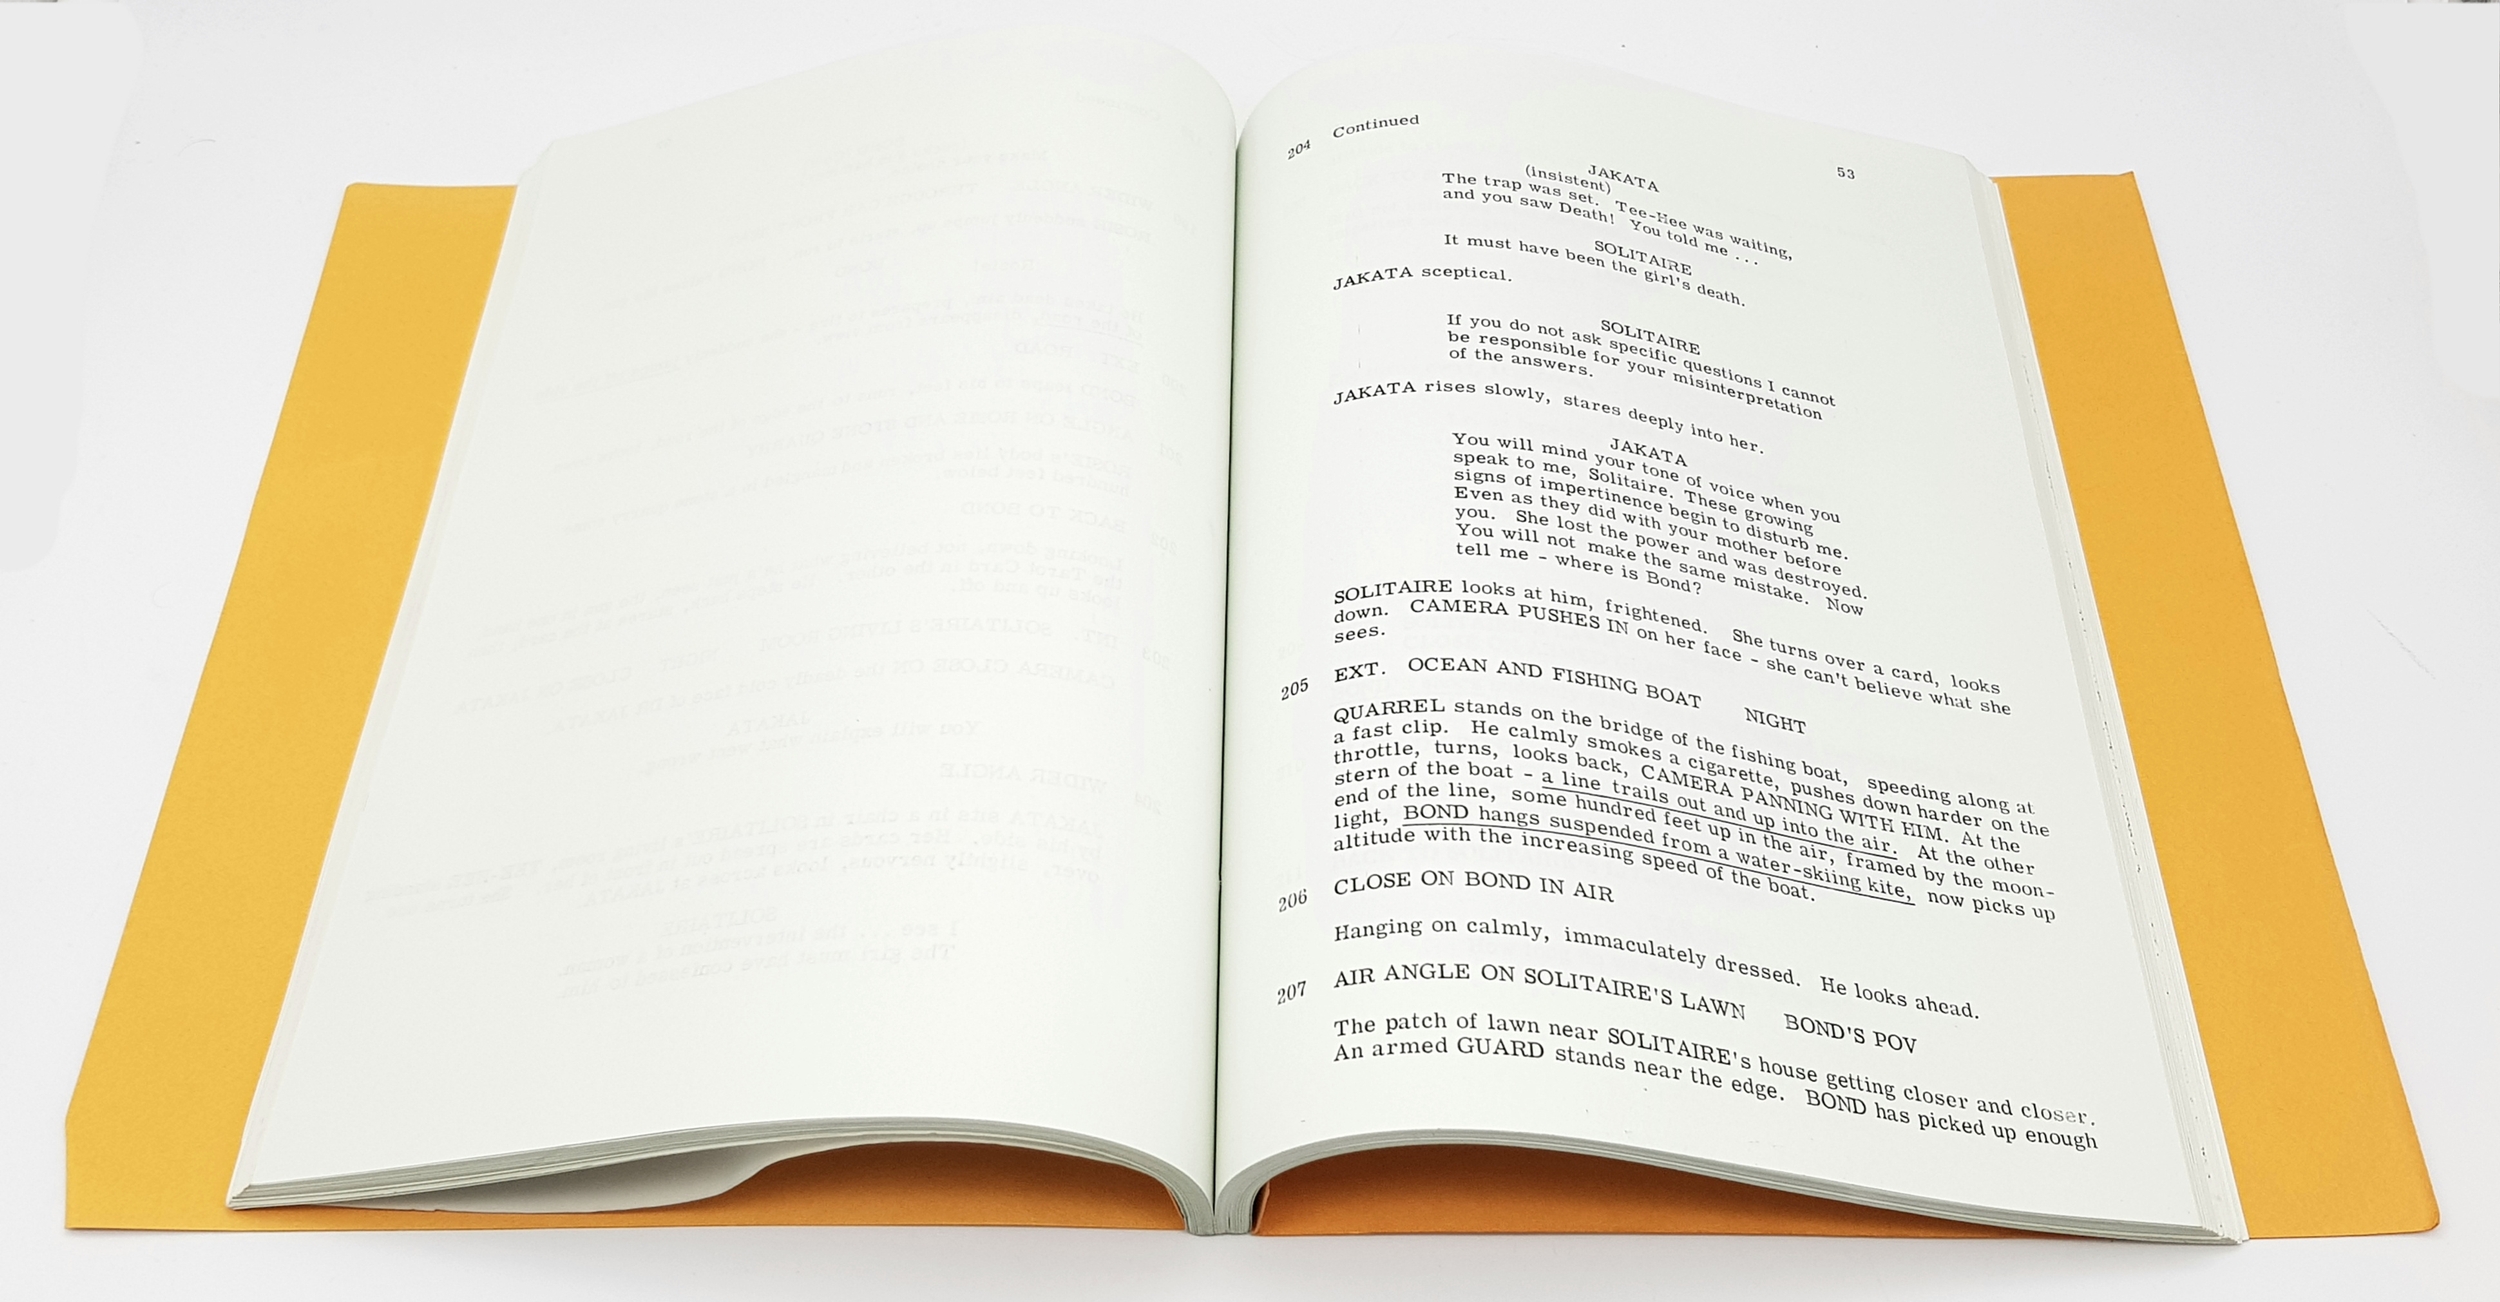 204 Continued
53
JAKATA
(insistent)
The trap was set. Tee-Hee was waiting,
and you saw Death! You told me ...
SOLITAIRE
It must have been the girl's death.
JAKATA sceptical.
SOLITAIRE
If you do not ask specific questions I cannot
be responsible for your misinterpretation
of the answers.
JAKATA rises slowly, stares deeply into her.
JAKATA
You will mind your tone of voice when you
speak to me, Solitaire. These growing
signs of impertinence begin to disturb me.
Even as they did with your mother before
you. She lost the power and was destroyed.
You will not make the same mistake. Now
tell me - where is Bond?
SOLITAIRE looks at him, frightened. She turns over a card, looks
down. CAMERA PUSHES IN on her face - she can't believe what she
sees.
205 EXT. OCEAN AND FISHING BOAT NIGHT
QUARREL stands on the bridge of the fishing boat, speeding along at
a fast clip. He calmly smokes a cigarette, pushes down harder on the
throttle, turns, looks back, CAMERA PANNING WITH HIM. At the
stern of the boat - a line trails out and up into the air. At the other
end of the line, some hundred feet up in the air, framed by the moon-
light, BOND hangs suspended from a water-skiing kite, now picks up
altitude with the increasing speed of the boat.
206 CLOSE ON BOND IN AIR
Hanging on calmly, immaculately dressed. He looks ahead.
207 AIR ANGLE ON SOLITAIRE'S LAWN BOND'S POV
The patch of lawn near SOLITAIRE's house getting closer and closer.
An armed GUARD stands near the edge. BOND has picked up enough